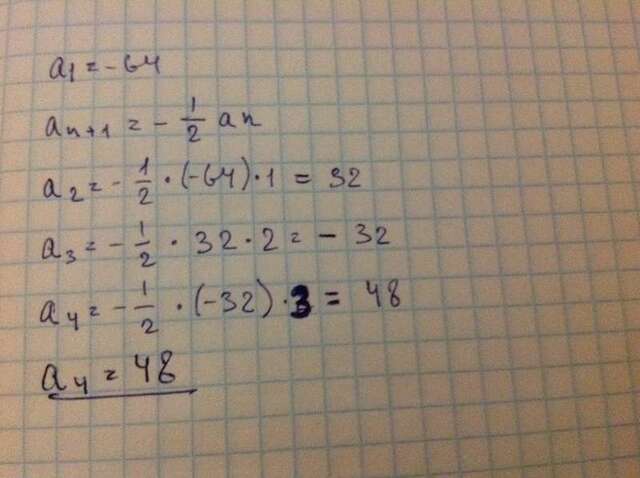 a₁ = -64
aₙ₊₁ = - 1/2 aₙ
a₂ = - 1/2 · (-64) · 1 = 32
a₃ = - 1/2 · 32 · 2 = - 32
a₄ = - 1/2 · (-32) · 3 = 48
a₄ = 48